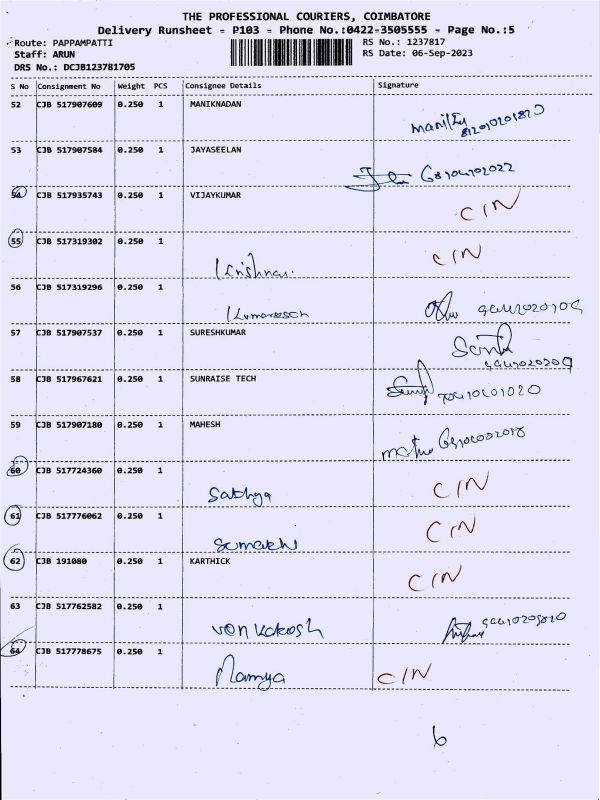 THE PROFESSIONAL COURIERS, COIMBATORE
Delivery Runsheet = P103 = Phone No.:0422-3505555 = Page No.:5
Route: PAPPAMPATTI RS No.: 1237817
Staff: ARUN RS Date: 06-Sep-2023
DRS No.: DCJB123781705
S No Consignment No Weight PCS Consignee Details Signature
52 CJB 517907609 0.250 1 MANIKNADAN
53 CJB 517907584 0.250 1 JAYASEELAN
54 CJB 517935743 0.250 1 VIJAYKUMAR CIN
55 CJB 517319302 0.250 1 CIN
Krishnan.
56 CJB 517319296 0.250 1
Kumaresch
57 CJB 517907537 0.250 1 SURESHKUMAR
58 CJB 517967621 0.250 1 SUNRAISE TECH
59 CJB 517907180 0.250 1 MAHESH
60 CJB 517724360 0.250 1 CIN
Sathya
61 CJB 517776062 0.250 1 CIN
62 CJB 191080 0.250 1 KARTHICK CIN
63 CJB 517762582 0.250 1
64 CJB 517778675 0.250 1
Ramya CIN
6